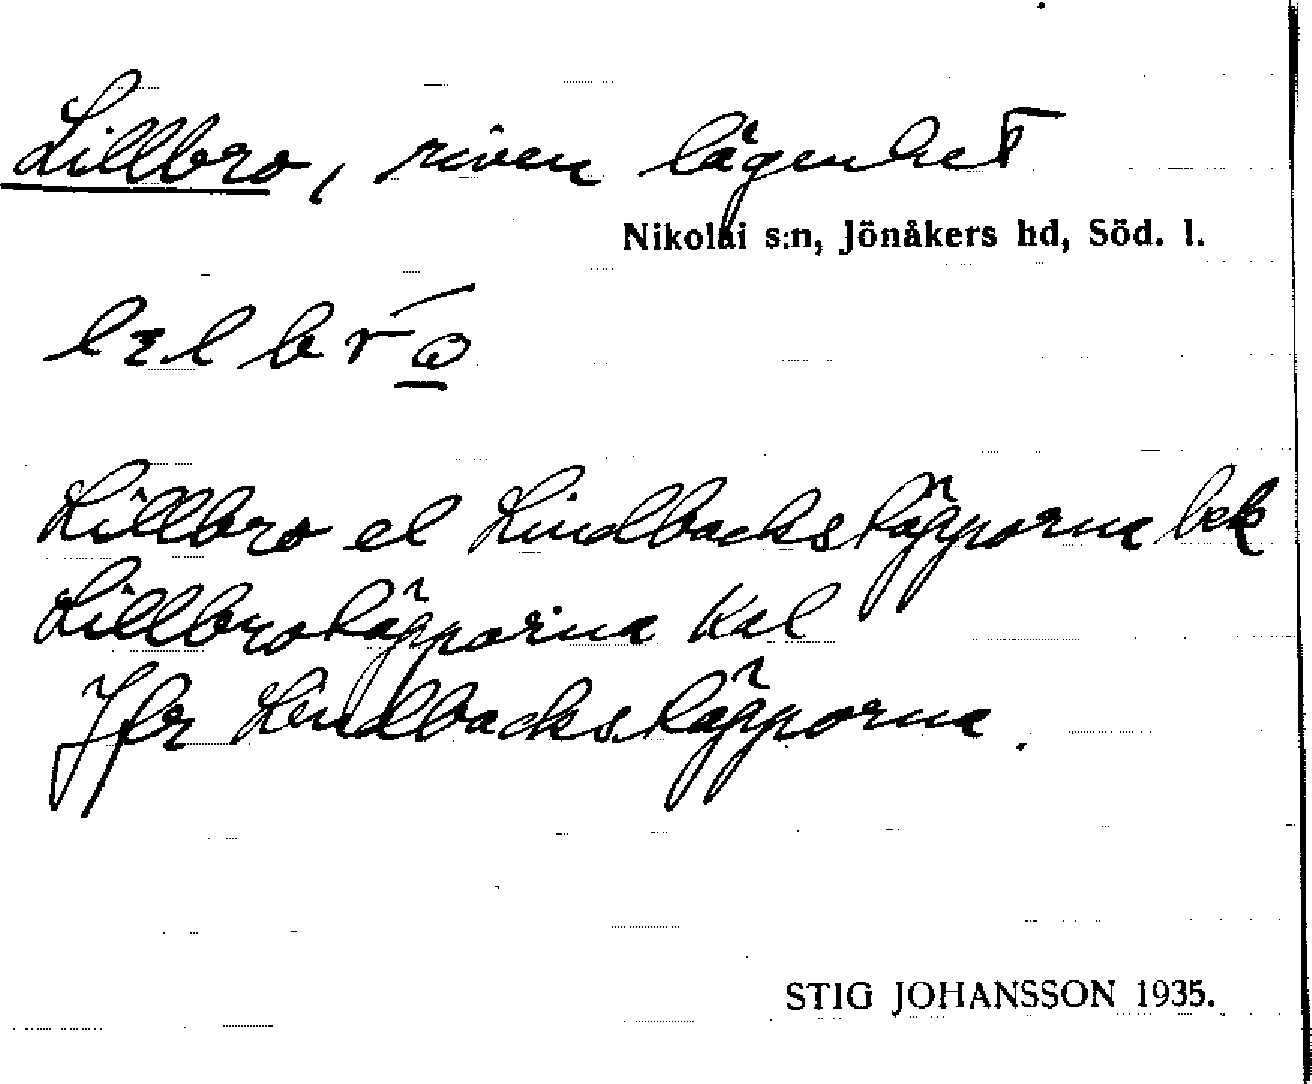 Lillbro, riven lägenhet
Nikolai s:n, Jönåkers hd, Söd. l.
lılbrω
Lillbro el Lindbackstäpporna bek
Lillbrotäpporna Kal
Jfr Lindbackstäpporna.
STIG JOHANSSON 1935.